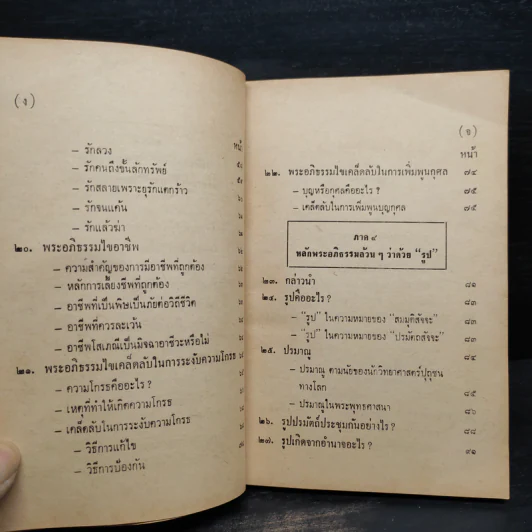 (ง)
หน้า
– รักลวง
– รักคนถึงขั้นลักทรัพย์
– รักสลายเพราะยุรักแตกร้าว
– รักจนแค้น
– รักแล้วฆ่า
๒๐. พระอภิธรรมไขอาชีพ
– ความสำคัญของการมีอาชีพที่ถูกต้อง
– หลักการเลี้ยงชีพที่ถูกต้อง
– อาชีพที่เป็นพิษเป็นภัยต่อวิถีชีวิต
– อาชีพที่ควรละเว้น
– อาชีพโสเภณีเป็นมิจฉาอาชีวะหรือไม่
๒๑. พระอภิธรรมไขเคล็ดลับในการระงับความโกรธ
– ความโกรธคืออะไร ?
– เหตุที่ทำให้เกิดความโกรธ
– เคล็ดลับในการระงับความโกรธ
– วิธีการแก้ไข
– วิธีการป้องกัน
หน้า
๒๒. พระอภิธรรมไขเคล็ดลับในการเพิ่มพูนกุศล ๗๔
– บุญหรือกุศลคืออะไร ? ๗๕
– เคล็ดลับในการเพิ่มพูนบุญกุศล ๗๕
ภาค ๔
หลักพระอภิธรรมล้วน ๆ ว่าด้วย “รูป”
๒๓. กล่าวนำ ๘๑
๒๔. รูปคืออะไร ? ๘๓
– “รูป” ในความหมายของ “สมมุติสัจจะ” ๘๓
– “รูป” ในความหมายของ “ปรมัตถสัจจะ” ๘๓
๒๕. ปรมาณู ๘๔
– ปรมาณู ตามนัยของนักวิทยาศาสตร์ปุถุชน
ทางโลก ๘๕
– ปรมาณูในพระพุทธศาสนา ๘๖
๒๖. รูปปรมัตถ์ประชุมกันอย่างไร ? ๘๘
๒๗. รูปเกิดจากอำนาจอะไร ? ๙๑